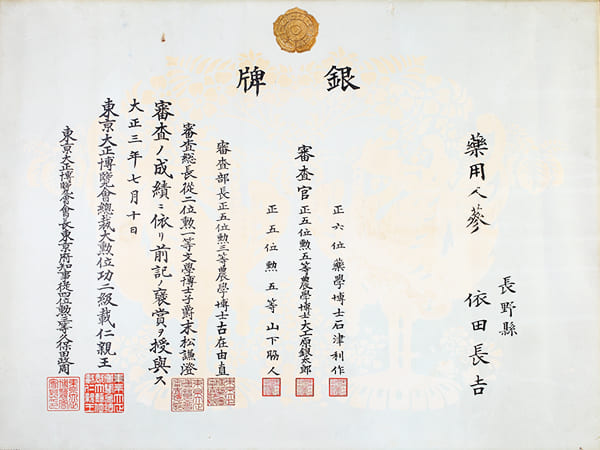 銀牌
藥用人蔘
長野縣
依田長吉
正六位藥學博士石津利作
審査官正五位勲五等農學博士大工原銀太郎
正五位勲五等山下脇人
審査部長正五位勲三等農學博士古在由直
審査総長從二位勲一等文學博士子爵末松謙澄
審査ノ成績ニ依リ前記ノ褒賞ヲ授與ス
大正三年七月十日
東京大正博覽會總裁大勲位功二級載仁親王
東京大正博覽會會長東京府知事從四位勲三等久保田政周